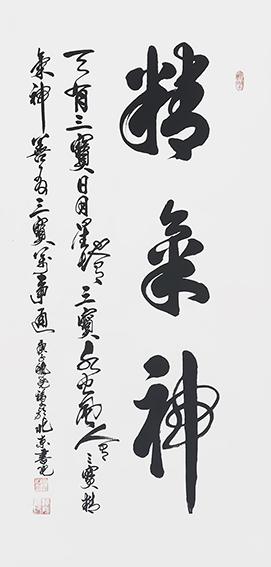 精氣神
天有三寶日月星地有三寶水火風人有三寶精
氣神善三寶萬事通 北京書